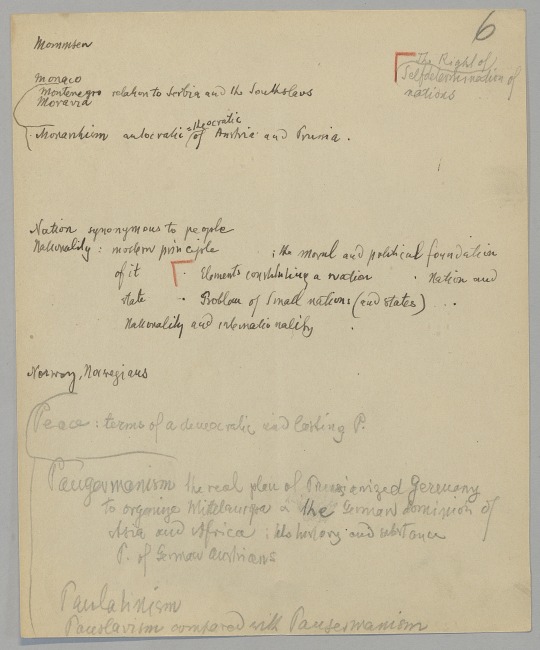 6
Mommsen
The Right of
Selfdetermination of
nations
Monaco
Montenegro relation to Serbia and the Southslavs
Moravia
Monarchism autocratic = theocratic of Austria and Prussia.
Nation synonymous to people
Nationality: modern principle ; the moral and political foundation
of it · Elements constituting a nation · Nation and
state · Problem of Small nations (and states) ..
Nationality and internationality .
Norway, Norwegians
Peace: terms of a democratic and lasting P.
Pangermanism the real plan of Prussianized Germany
to organize Mitteleuropa a the German dominion of
Asia and Africa : its history and substance
P. of German Austrians
Panlatinism
Panslavism compared with Pangermanism